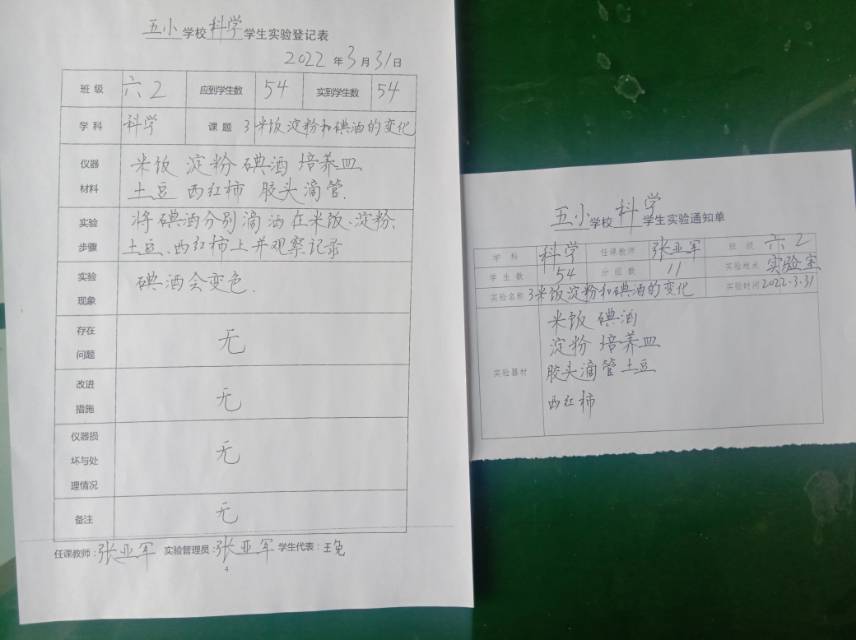 五小学校科学学生实验登记表
2022年3月31日
班级 六2 应到学生数 54 实到学生数 54
学科 科学 课题 3米饭淀粉和碘酒的变化
仪器材料 米饭 淀粉 碘酒 培养皿
土豆 西红柿 胶头滴管.
实验步骤 将碘酒分别滴洒在米饭、淀粉、
土豆、西红柿上并观察记录
实验现象 碘酒会变色.
存在问题 无
改进措施 无
仪器损坏与处理情况 无
备注 无
任课教师:张亚军 实验管理员:张亚军 学生代表:王兔
4
五小学校科学学生实验通知单
学科 科学 任课教师 张亚军 班级 六2
学生数 54 分组数 11 实验地点 实验室
实验名称 3米饭淀粉和碘酒的变化 实验时间 2022.3.31
实验器材 米饭 碘酒
淀粉 培养皿
胶头滴管 土豆
西红柿